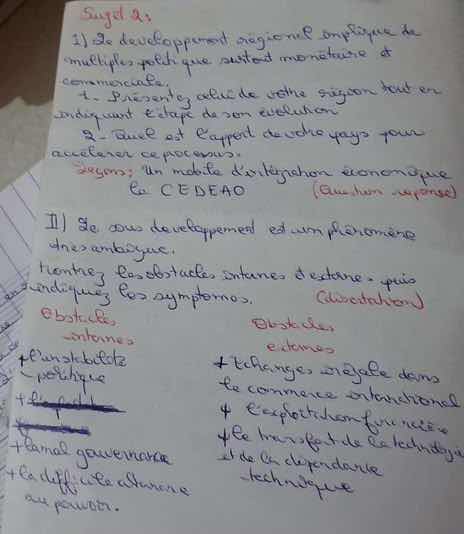 Sujet 2:
I) Le developpement régional implique de
multiples politique surtout monétaire et
commerciale.
1- Présentez celui de votre région tout en
indiquant l'étape de son évolution
2- Quel est l'apport de votre pays pour
accélerer ce processus.
Leçons: Un mobile d'intégration économique
la CEDEAO (Question reponse)
II) Le sous developpement est un phénomène
très ambigue.
Montrez les obstacles internes et externe puis
indiquez les symptomes. (dissertation)
Obstacles internes
+ l'instabilité
politique
+ la mal gouvernance
+ la difficile alternance
au pouvoir.
Obstacles externes
+ Echanges inégale dans
le commerce international
+ l'exploitation
+ le transfert de la technologie
et de la dépendance
technique